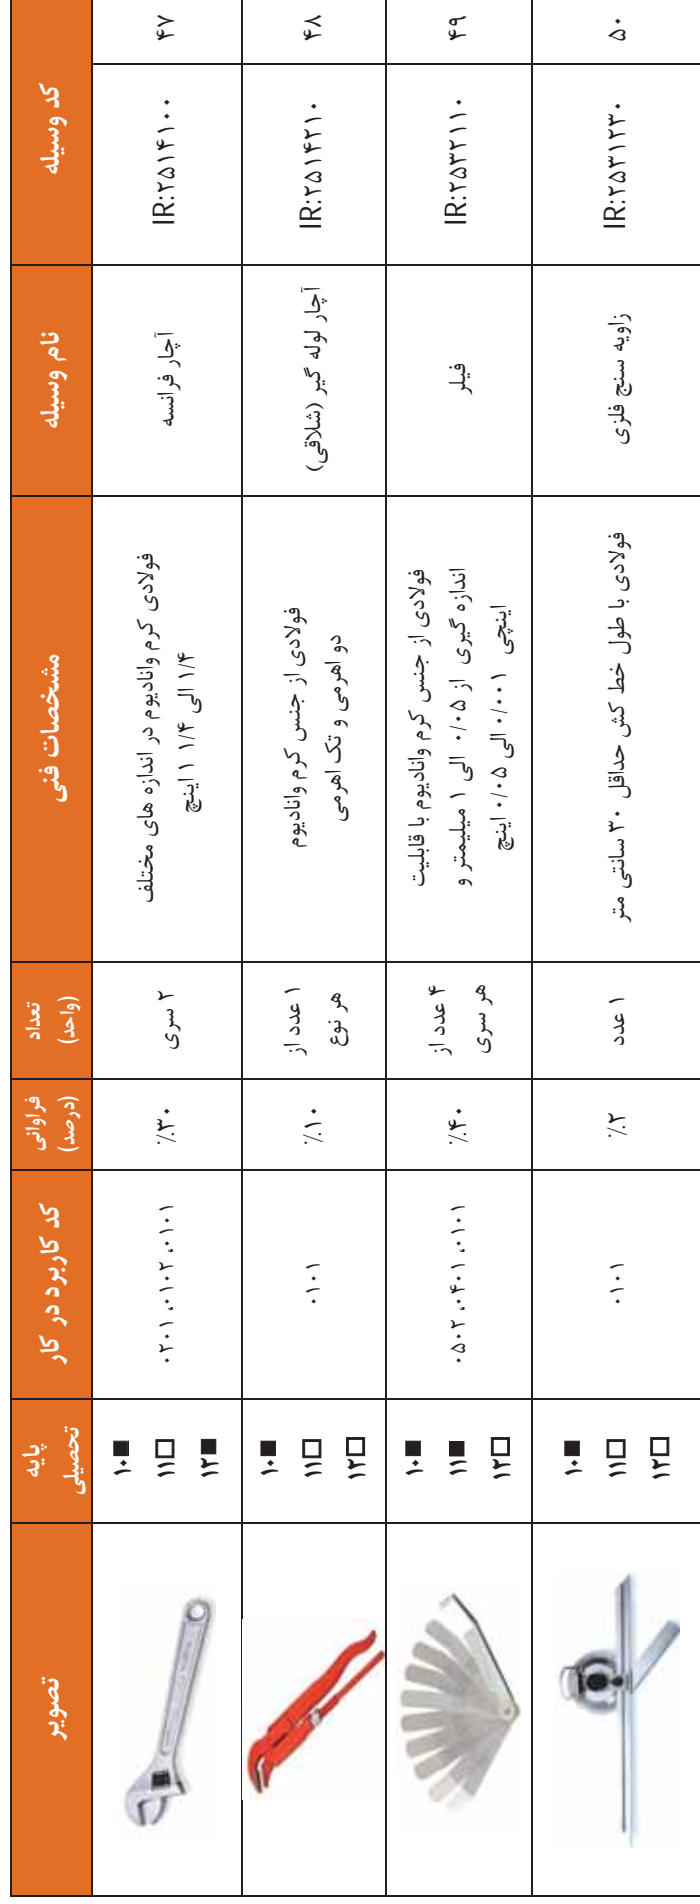 کد وسیله
نام وسیله
مشخصات فنی
تعداد
(واحد)
فراوانی
(درصد)
کد کاربرد در کار
پایه
تحصیلی
تصویر
۴۷
IR:۲۵۱۴۱۰۰
آچار فرانسه
فولادی کرم وانادیوم در اندازه های مختلف
۱/۴ الی ۱/۴ ۱ اینچ
۲ سری
٪۳۰
۰۲۰۱ ،۰۱۰۲ ،۰۱۰۱
۱۰■
۱۱□
۱۲■
۴۸
IR:۲۵۱۴۲۱۰
آچار لوله گیر (شلاقی)
فولادی از جنس کرم وانادیوم
دو اهرمی و تک اهرمی
۱ عدد از
هر نوع
٪۱۰
۰۱۰۱
۱۰■
۱۱□
۱۲□
۴۹
IR:۲۵۳۲۱۱۰
فیلر
فولادی از جنس کرم وانادیوم با قابلیت
اندازه گیری از ۰/۰۵ الی ۱ میلیمتر و
اینچی ۰/۰۰۱ الی ۰/۰۵ اینچ
۴ عدد از
هر سری
٪۴۰
۰۵۰۲ ،۰۴۰۱ ،۰۱۰۱
۱۰■
۱۱■
۱۲□
۵۰
IR:۲۵۳۱۲۳۰
زاویه سنج فلزی
فولادی با طول خط کش حداقل ۳۰ سانتی متر
۱ عدد
٪۲
۰۱۰۱
۱۰■
۱۱□
۱۲□